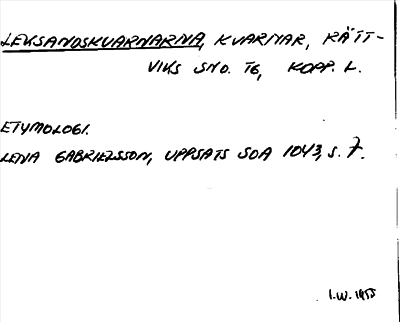 LEKSANDSKVARNARNA, KVARNAR, RÄTT-
VIKS SND. TG, KOPP. L.
ETYMOLOGI.
LENA GABRIELSSON, UPPSATS SOA 1043, S. 7.
I.W. 1955